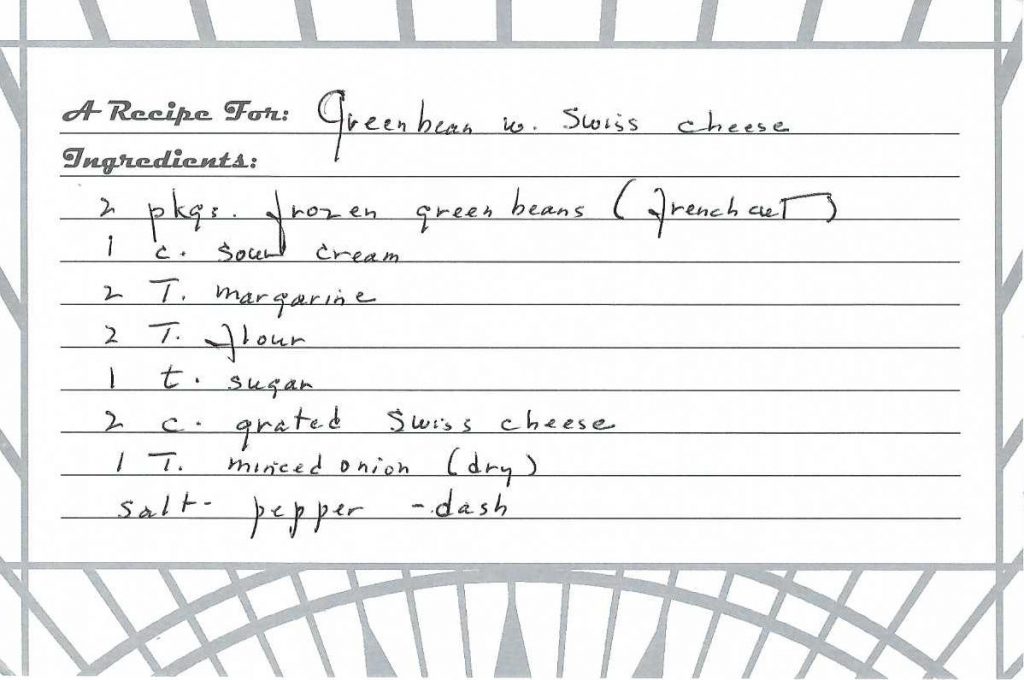 A Recipe For: Greenbean w. Swiss cheese
Ingredients:
2 pkgs. frozen green beans (french cut)
1 c. sour cream
2 T. margarine
2 T. flour
1 t. sugar
2 c. grated Swiss cheese
1 T. minced onion (dry)
salt - pepper - dash